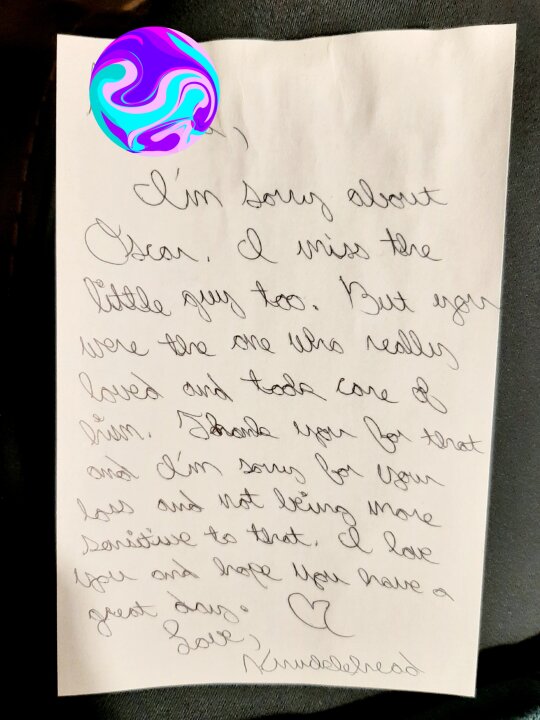 I'm sorry about
Oscar. I miss the
little guy too. But you
were the one who really
loved and took care of
him. Thank you for that
and I'm sorry for your
loss and not being more
sensitive to that. I love
you and hope you have a
great day.
Love,
Knucklehead